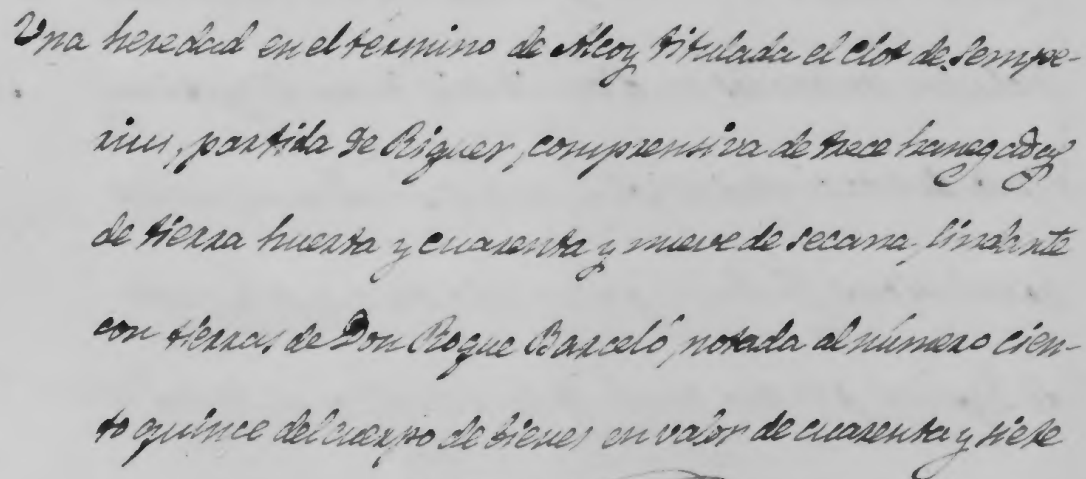 Una heredad en el termino de Alcoy titulada el clot de Sempe-
rius, partida de Riquer, comprensiva de trece hanegadas
de tierra huerta y cuarenta y nueve de secana, lindante
con tierras de Don Roque Barceló, notada al número cien-
to quince del cuerpo de bienes en valor de cuarenta y siete